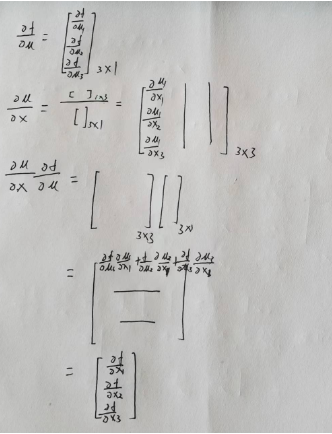 ∂f/∂u = [∂f/∂u₁ ∂f/∂u₂ ∂f/∂u₃] 3×1
∂u/∂x = [ ]₁ₓ₃ / [ ]₃ₓ₁ = [∂u₁/∂x₁ ∂u₁/∂x₂ ∂u₁/∂x₃ | | ] 3×3
∂u/∂x ∂f/∂u = [ ] 3×3 [ ] 3×1
= [∂f/∂u₁ ∂u₁/∂x₁ + ∂f/∂u₂ ∂u₂/∂x₁ + ∂f/∂u₃ ∂u₃/∂x₁ — —]
= [∂f/∂x₁ ∂f/∂x₂ ∂f/∂x₃]